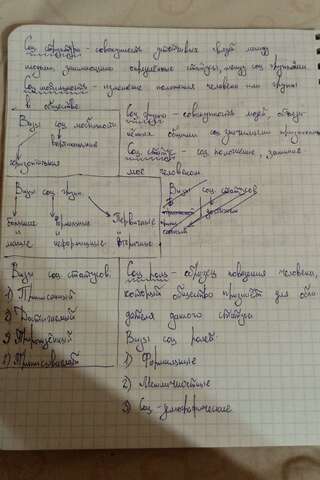 Соц структура - совокупность устойчивых связей между
людьми, занимающими определённые статусы, между соц группами.
Соц мобильность - изменение положения человека или группы
в обществе
Виды соц мобильности
вертикальная
горизонтальная
Соц группа - совокупность людей, объеди-
нённая общими соц значимыми признаками
Соц статус - соц положение, занимае
мое человеком
Виды соц групп
большие и малые
формальные и неформальные
Первичные и вторичные
Виды соц статусов
Виды соц статусов.
1) Приписанный
2) Достигаемый
3) Прирождённый
Соц роль - образец поведения человека,
который общество признаёт для обла
дателя данного статуса
Виды соц ролей
1) Формальные
2) Межличностные
3) Соц - демографические